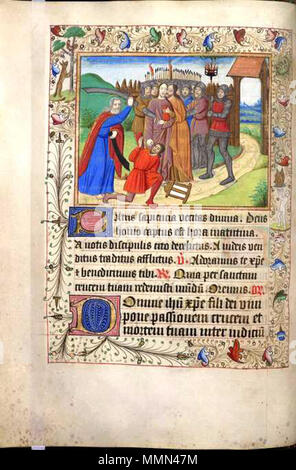 Patris sapiencia veritas divina. Deus
homo captus est hora matutina.
A notis discipulis cito derelictus. A iudeis ven
ditus traditus afflictus. V. Adoramus te xpe
& benedicimus tibi. R. Quia per sanctam
crucem tuam redemisti mūdū. Oremus. Or.
Domine ihū xpe fili dei vivi
pone passionem crucem et
mortem tuam inter iudiciū
alamy - MMN47M